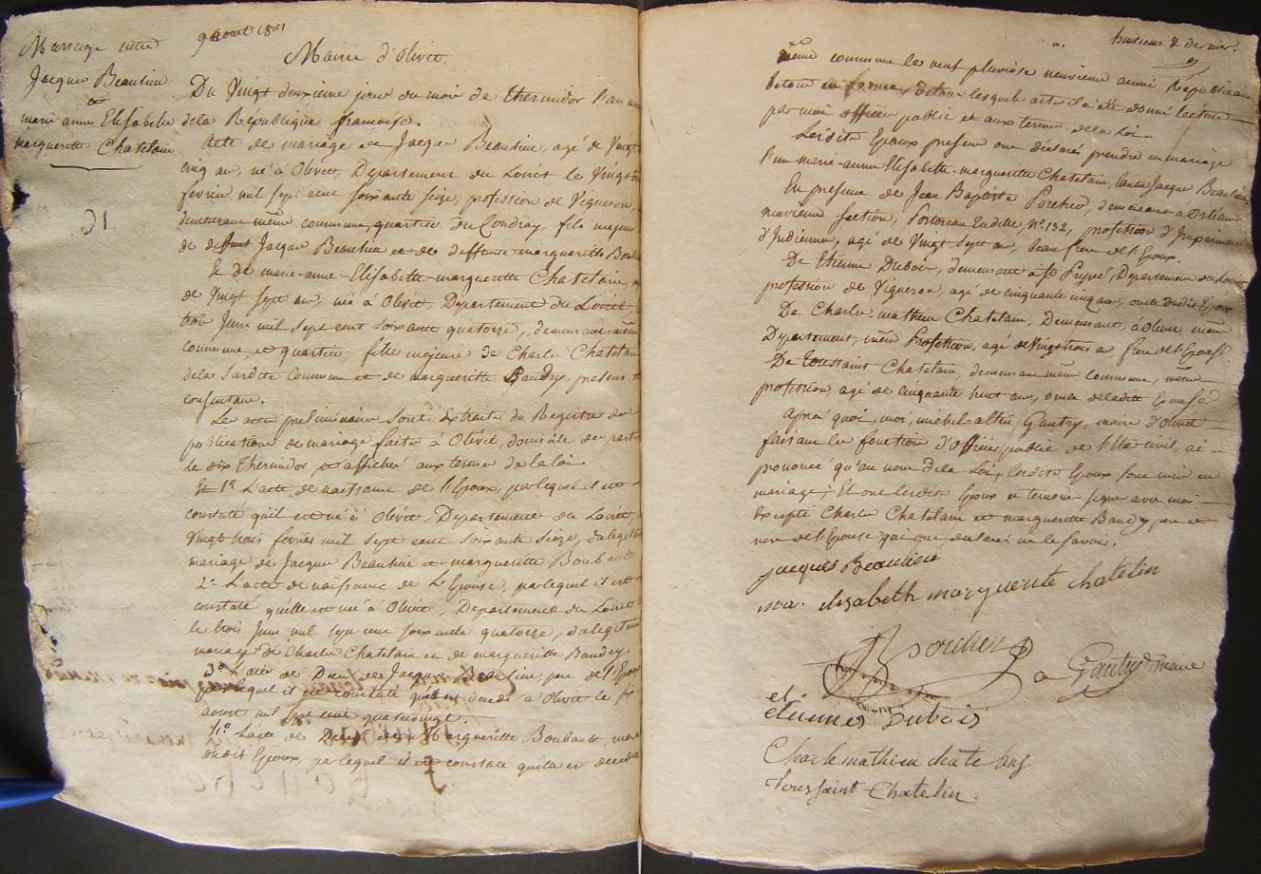 Mariage entre
Jacques Beaulieu
et
marie anne Elisabeth
marguerite Chatelain
31
9 aout 1801
Mairie d'Olivet.
Du Vingt deuxieme jour du mois de thermidor l'an
de la Republique française.
Acte de mariage de Jacques Beaulieu, agé de Vingt
cinq ans, né à Olivet, Departement du Loiret le Vingt
fevrier mil sept cent soixante seize, profession de Vigneron,
demeurant même commune, quartier du Coudray, fils majeur
de deffunt Jacques Beaulieu et de deffunte marguerite
Et de marie-anne-Elisabette-marguerette Chatelain,
de Vingt sept ans, née à Olivet, Departement du Loiret,
trois Juin mil sept cent soixante quatorze, demeurant même
commune et quartier, fille majeure de Charles Chatelain
de la susdite commune et de marguerite Baudry, presens et
consentans.
Les actes preliminaires sont extraits du Registre des
publications de mariage faites à Olivet, domicile des parties
le dix thermidor, et affiches aux termes de la loi.
Et 1° L'acte de naissance de l'Epoux, par lequel il est
constaté qu'il est né à Olivet, Departement du Loiret,
Vingt trois fevrier mil sept cent soixante seize, du legitime
mariage de Jacques Beaulieu et marguerite
2° L'acte de naissance de L'Epouse, par lequel il est
constaté qu'elle est née à Olivet, Departement du Loiret
le trois Juin mil sept cent soixante quatorze, du legitime
mariage de Charles Chatelain et de marguerite Baudry.
3° L'acte de Décès de Jacques Beaulieu, pere de l'Epoux
par lequel il est constaté qu'il est décédé à Olivet le
aoust mil sept cent quatrevingt.
4° L'acte de Décès de Marguerite, mere
dudit Epoux, par lequel il est constaté qu'elle est decedée
huitieme & dernier.
même commune le neuf pluviose neuvieme année Republicaine
de tous lesquels actes il a été donné lecture
par moi officier public et aux termes de la Loi.
Lesdits Epoux presens ont déclaré prendre en mariage
l'un marie-anne Elisabette-marguerette Chatelain, l'autre Jacques Beaulieu
En presence de Jean Baptiste, demeurant à Orleans
neuvieme section, N° 132, profession d'Imprimeur
d'Indiennes, agé de Vingt sept ans, beau frere de l'Epoux.
De Etienne Dubois, demeurant à St Pryvé, Departement du Loiret
profession de Vigneron, agé de cinquante cinq ans, oncle dudit Epoux
De Charles mathieu Chatelain, Demeurant, à Olivet même
Departement, même Profession, agé de Vingt trois ans frere de l'Epouse
De toussaint Chatelain, demeurant même commune, même
profession, agé de cinquante huit ans, oncle de ladite Epouse
Après quoi, moi, michel Gautry, maire d'Olivet
faisant les fonctions d'officier public de l'Etat civil, ai
prononcé qu'au nom de la Loi, lesdits Epoux sont unis en
mariage; Et ont lesdits Epoux et temoins signé avec moi
Excepté Charles Chatelain et marguerette Baudry, pere et
mere de l'Epouse qui ont declaré ne le savoir.
Jacques Beaulieu
mar. elisabeth marguerite Chatelin
Gautry Maire
et
etienne Dubois
Charle mathieu
Toussaint Chatelin.